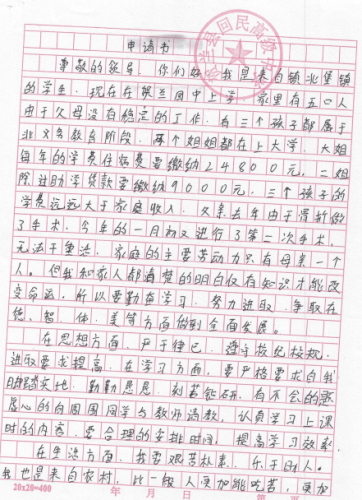 申请书
尊敬的领导:你们好!我是来自镇北堡镇
的学生,现在在银川回中上学,家里有五口人
由于父母没有稳定的工作,有三个孩子都属于
非义务教育阶段,两个姐姐都在上大学,大姐
每年的学费住宿费要缴纳24800元,二姐
除过助学贷款要缴纳9000元,三个孩子的
学费远远大于家庭收入,父亲去年由于滑
了手术,今年的一月初又进行了第二次手术,
无法干重活,家庭的主要劳动力只有母亲一个
人。但我和家人都清楚的明白仅有知识才能改
变命运,所以要勤奋学习,努力进取,争取在
德、智、体、美等方面做到全面发展。
在思想方面,严于律己,遵守校纪校规,
进取要求提高,在学习方面,要严格要求自我
脚踏实地,勤勤恳恳,刻苦钻研,有不会的就
虚心的向周围同学与教师请教,认真学习上课
时的内容,要合理的安排时间,提高学习效率
在生活方面,我要艰苦朴素,乐于助人。
我也是来自农村,比一般人更加能吃苦,更加
20x20=400 年 月 日 第 页